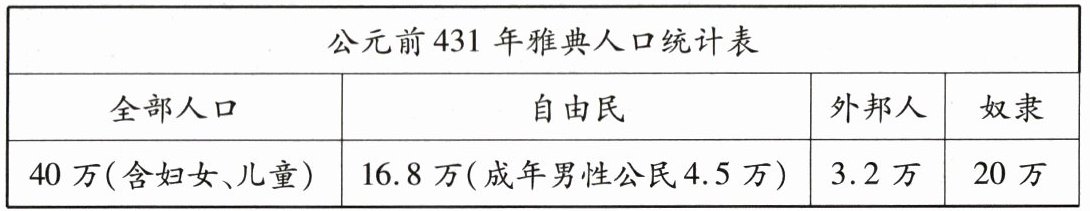 公元前431年雅典人口统计表
全部人口 自由民 外邦人 奴隶
40万(含妇女、儿童) 16.8万(成年男性公民4.5万) 3.2万 20万